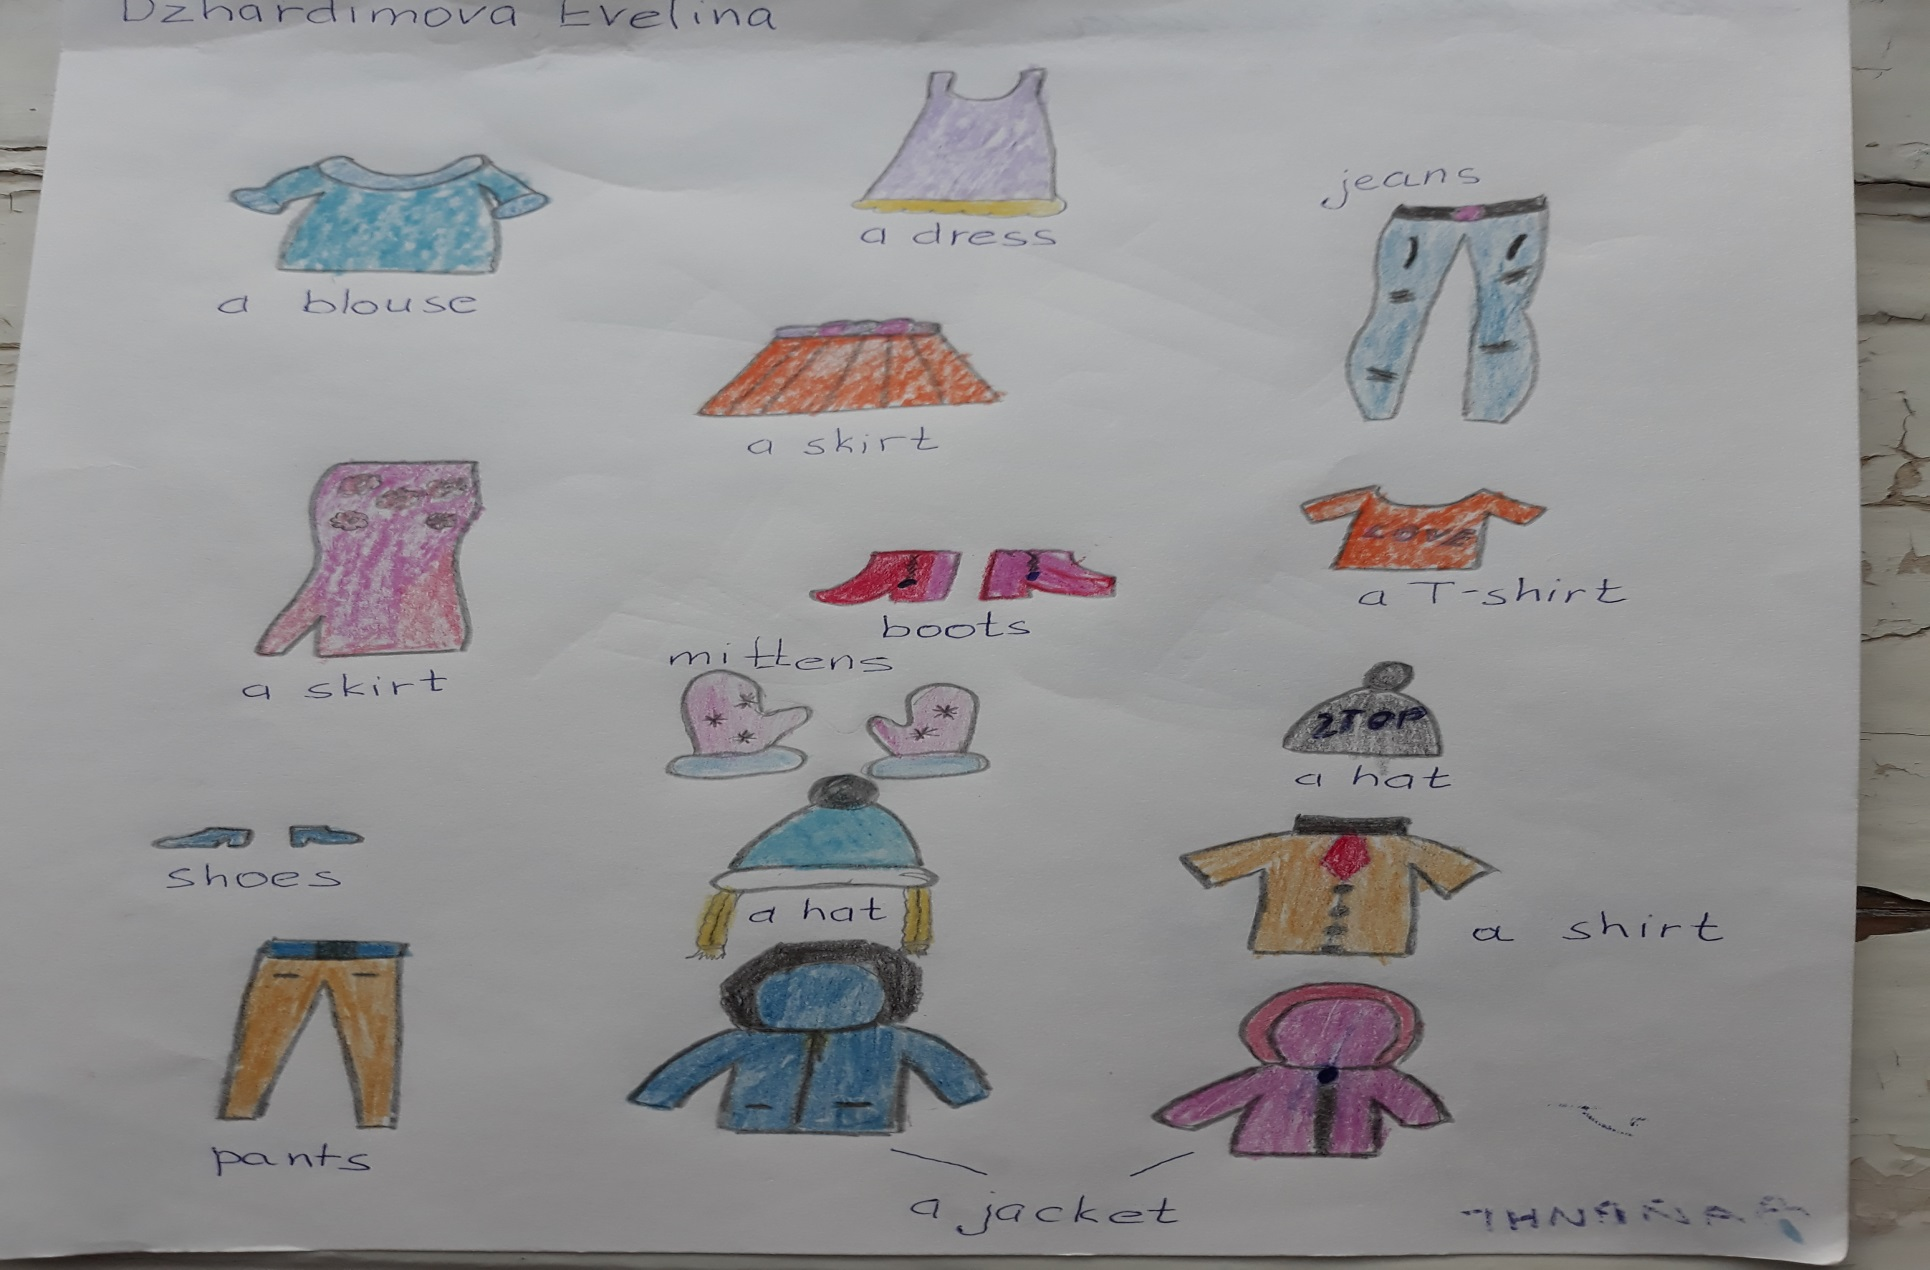 Dzhardimova Evelina
a dress
jeans
a blouse
a skirt
LOVE
a T-shirt
boots
mittens
a skirt
2TOP
a hat
shoes
a hat
a shirt
pants
a jacket